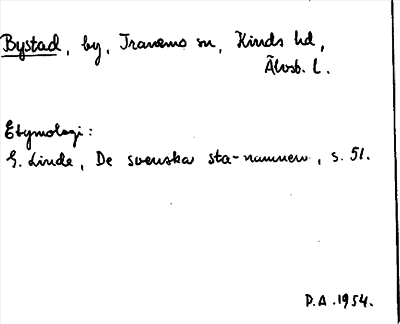 Bystad, by, Tranemo sn, Kinds hd,
Älvsb. L.
Etymologi:
G. Linde, De svenska sta-namnen, s. 51.
P.A. 1954.